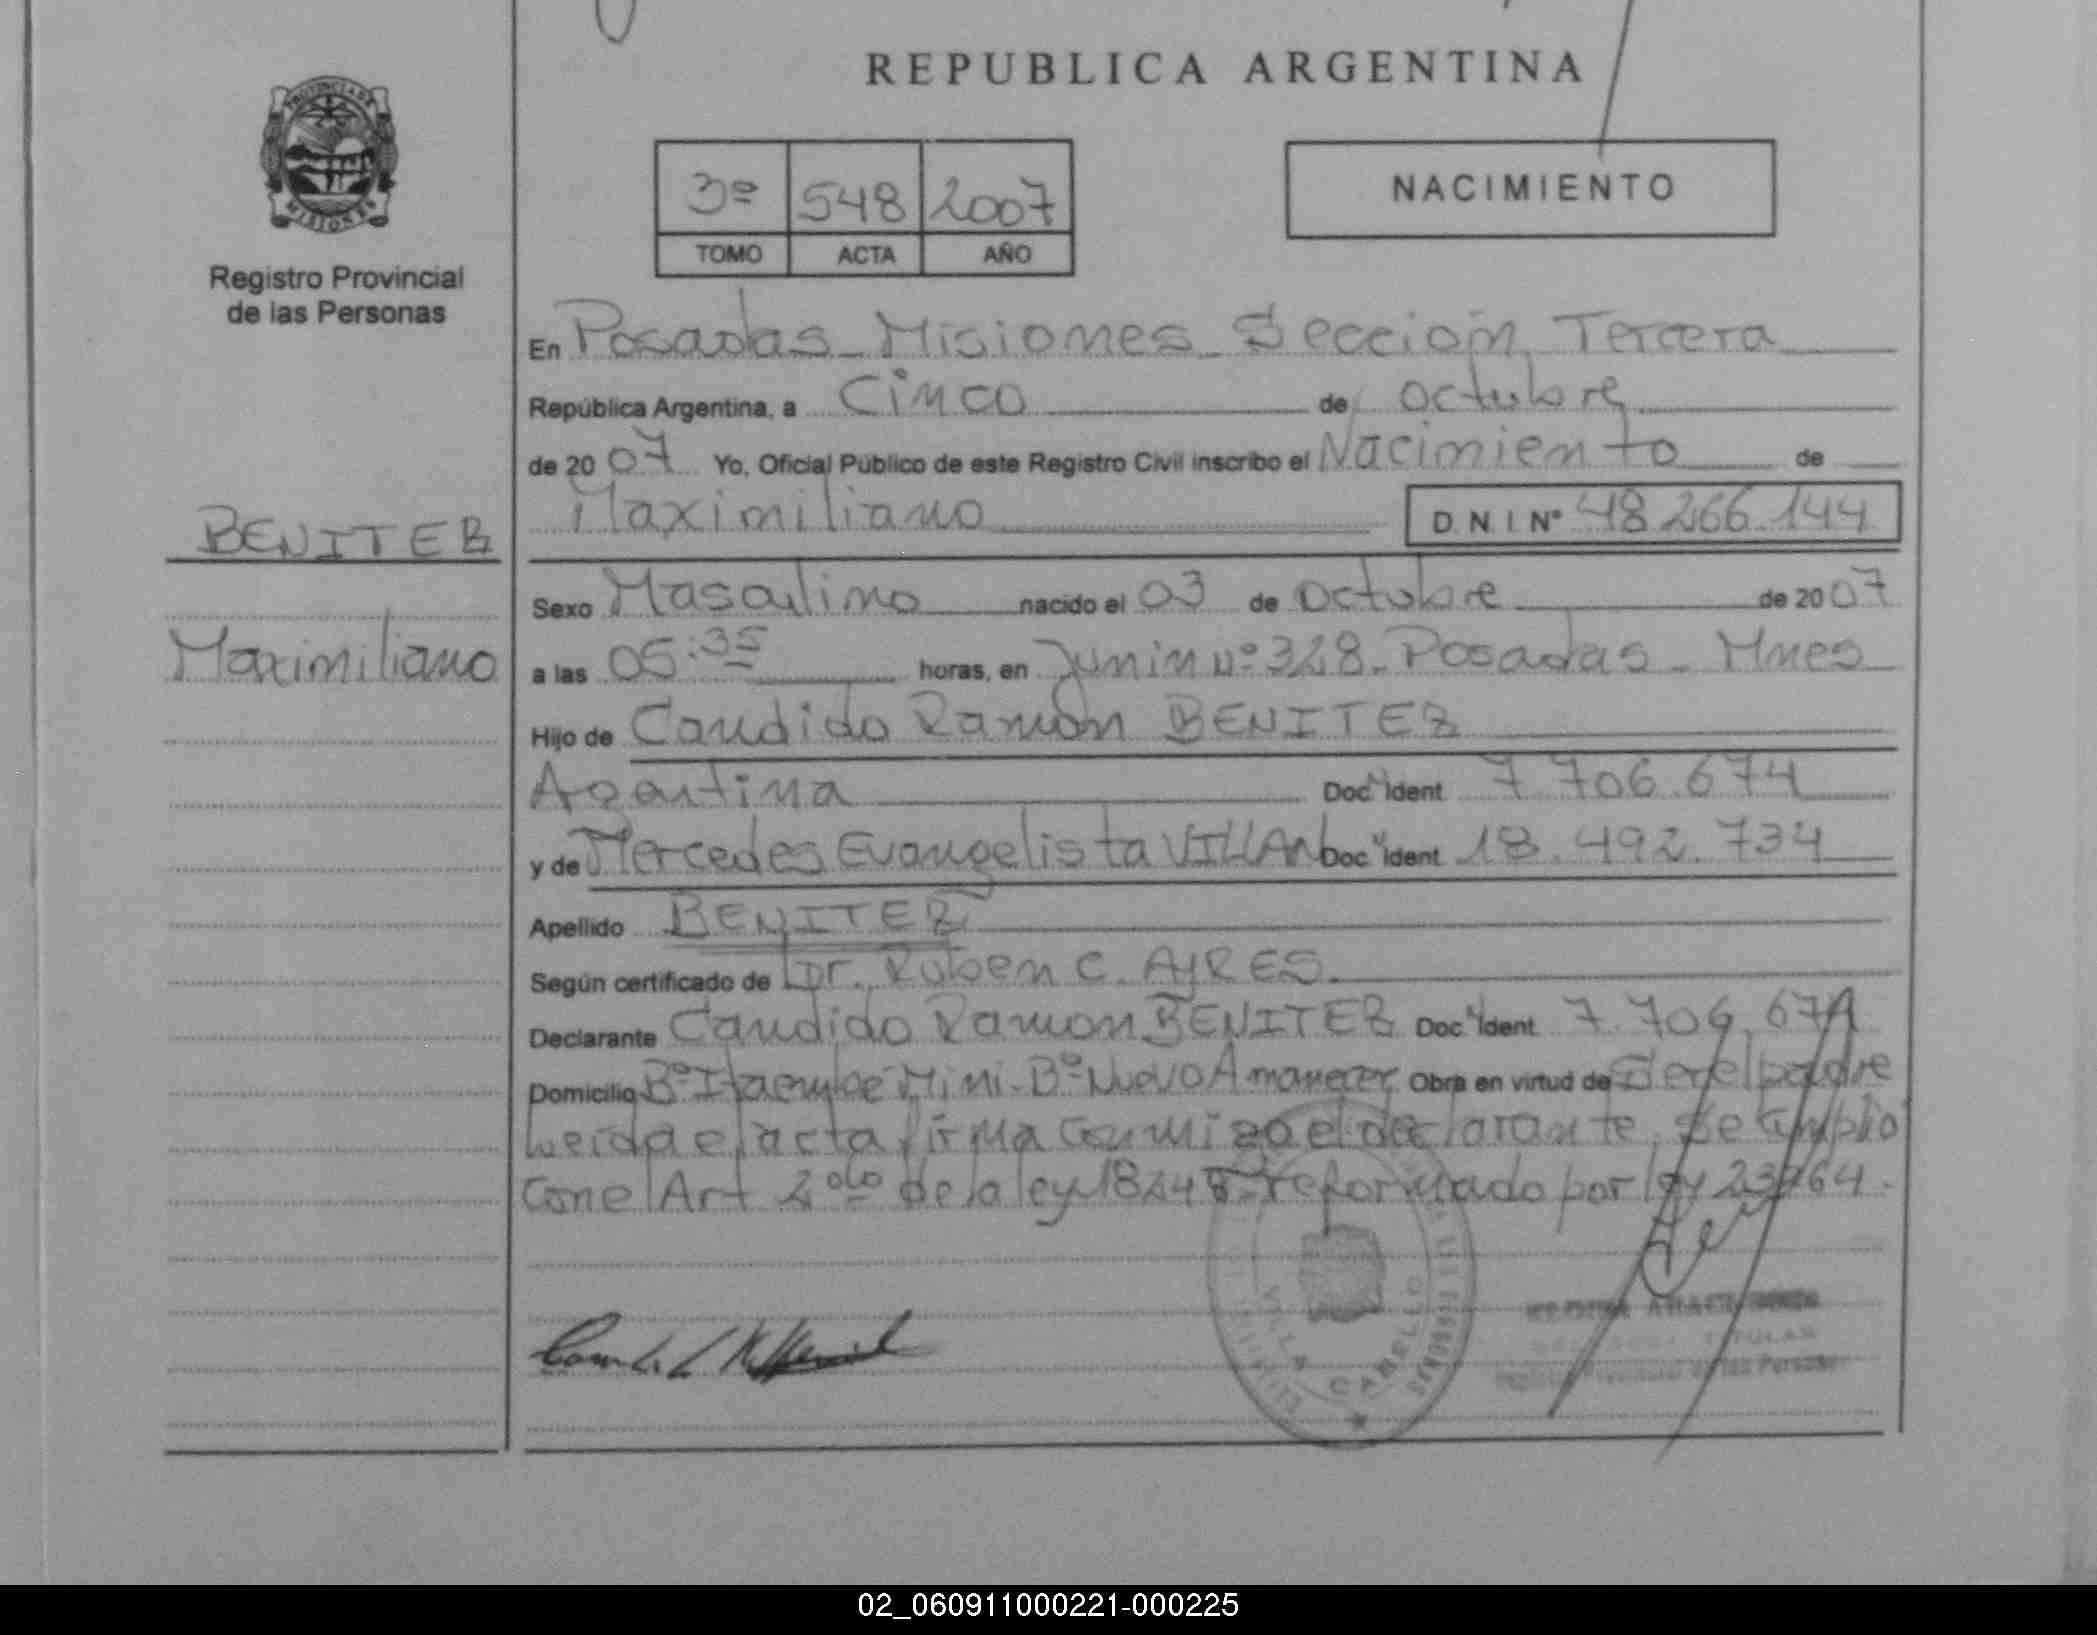 REPUBLICA ARGENTINA
PROVINCIA DE
MISIONES
Registro Provincial
de las Personas
3º 548 2007
TOMO ACTA AÑO
NACIMIENTO
En Posadas - Misiones - Sección Tercera
República Argentina, a Cinco de octubre
de 2007 Yo, Oficial Público de este Registro Civil inscribo el Nacimiento de
Maximiliano D.N.I. Nº 48 266 144
BENITEZ
Maximiliano
Sexo Masculino nacido el 03 de octubre de 2007
a las 05:35 horas, en Junin nº 328 - Posadas - Mnes
Hijo de Candido Ramón BENITEZ
Argentina Doc Ident 7 706 674
y de Mercedes Evangelista Doc Ident 18.492.734
Apellido BENITEZ
Según certificado de Dr. Ruben C. AYRES
Declarante Candido Ramon BENITEZ Doc Ident 7.706.674
Domicilio Bº Itaembe Mini - Bº Nuevo Amanecer Obra en virtud de Ser el padre
Leida el acta firma conmigo el declarante. Se cumplio
con el Art 2do de la ley 18248 reformado por ley 23264.
VILLA CABELLO
TITULAR
Registro Provincial de las Personas
02_060911000221-000225